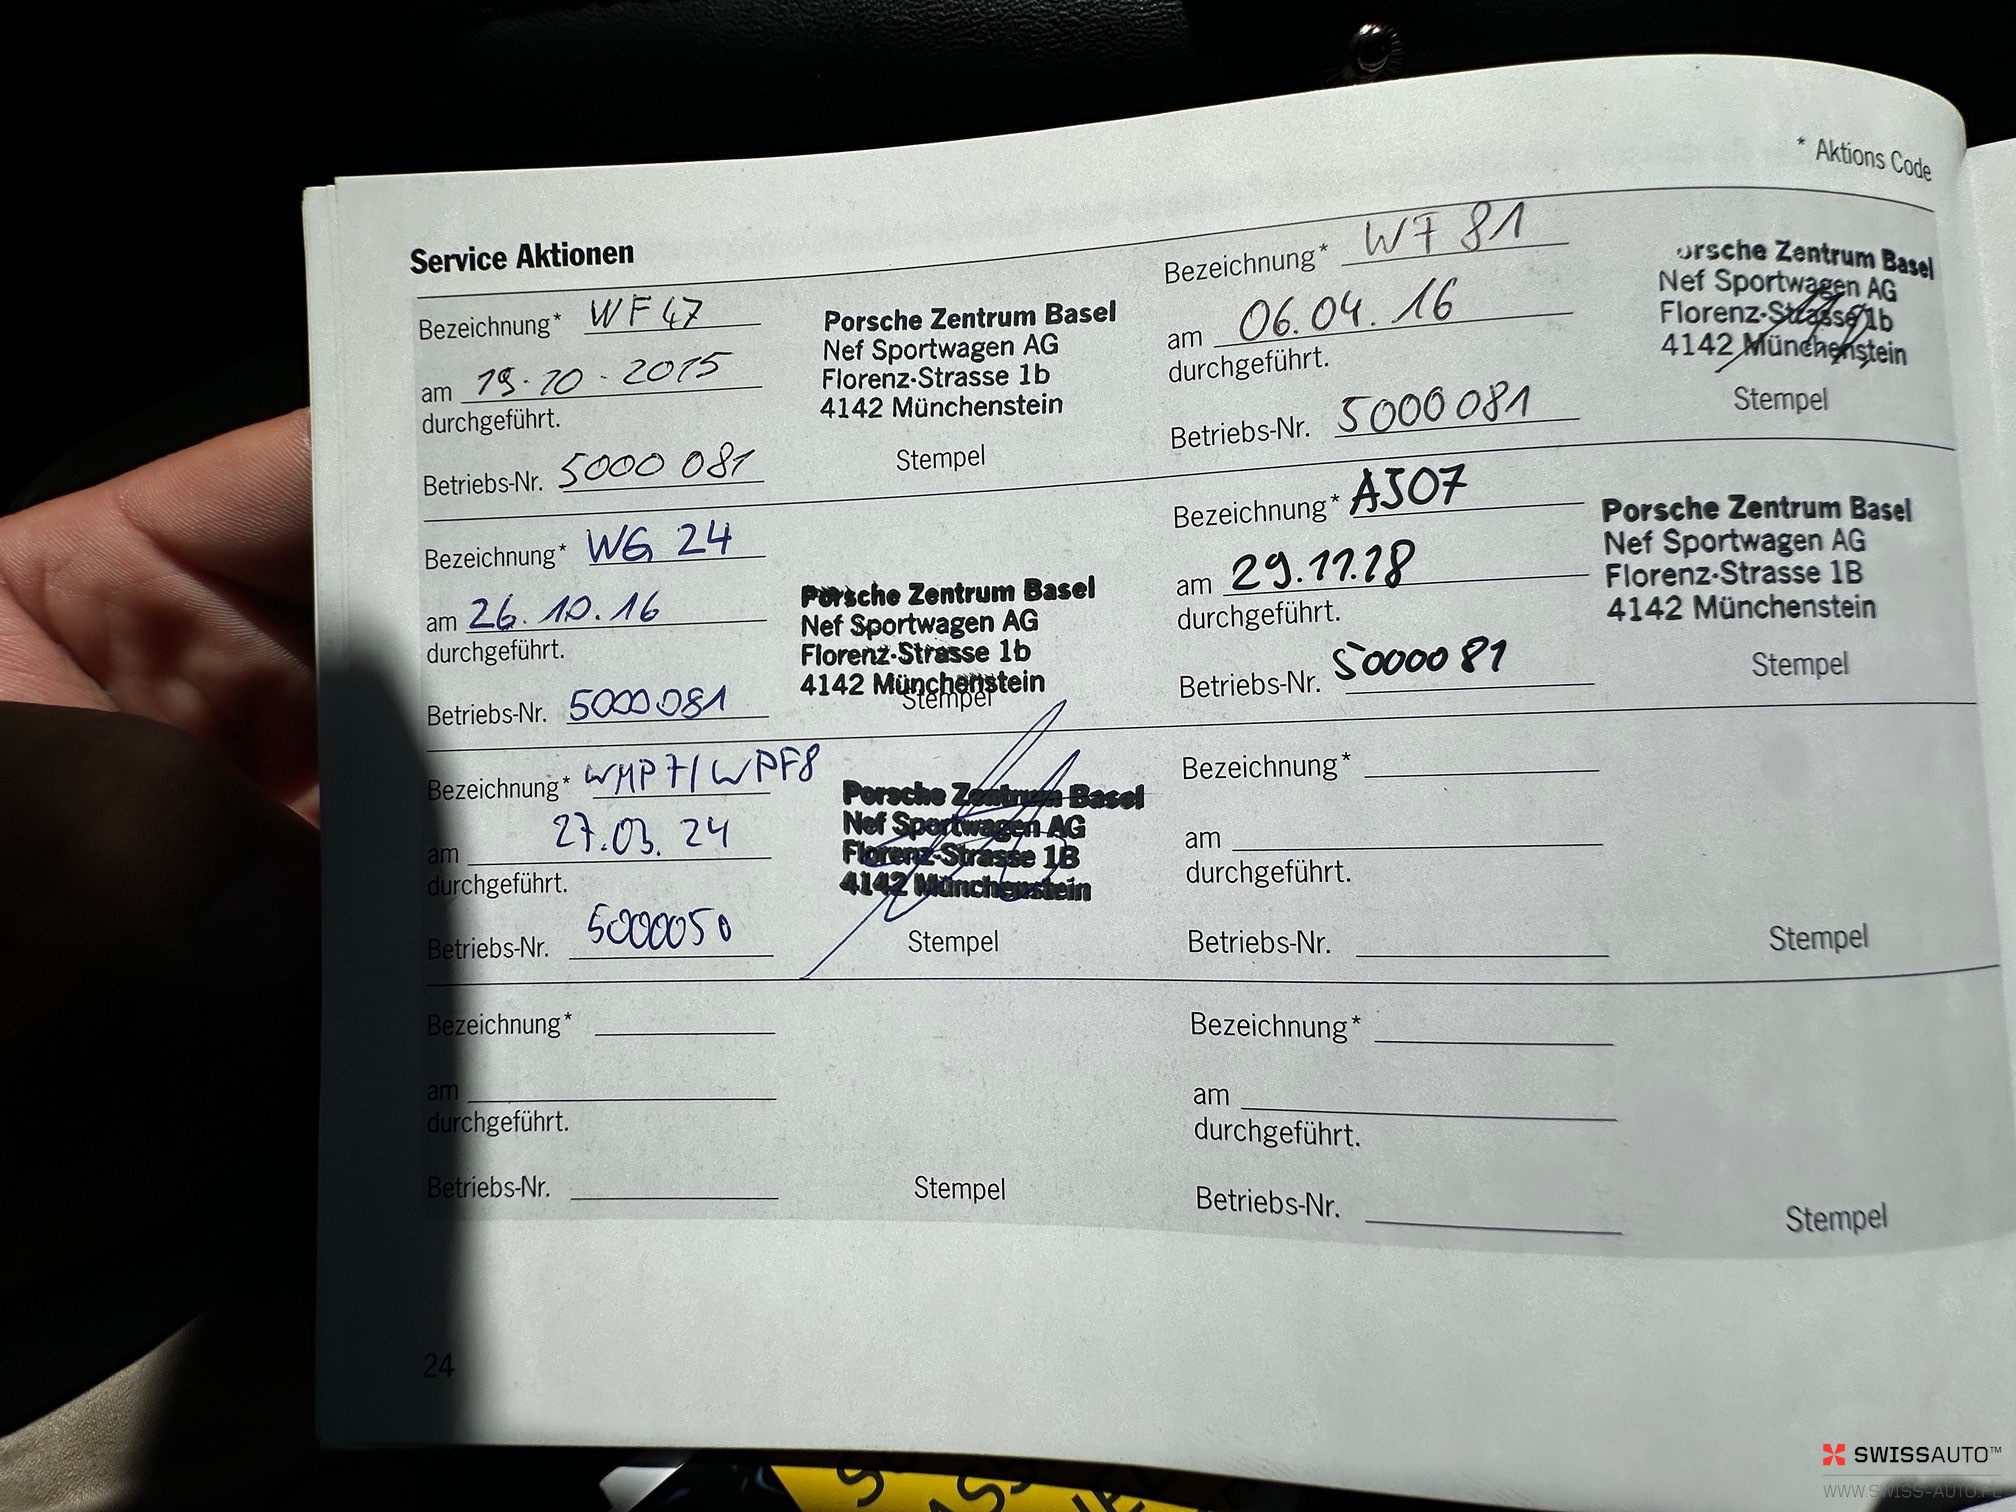 * Aktions Code
Service Aktionen
Bezeichnung* WF47
am 19.10.2015
durchgeführt.
Betriebs-Nr. 5000 081
Porsche Zentrum Basel
Nef Sportwagen AG
Florenz-Strasse 1b
4142 Münchenstein
Stempel
Bezeichnung* WF 81
am 06.04.16
durchgeführt.
Betriebs-Nr. 5000081
orsche Zentrum Basel
Nef Sportwagen AG
Florenz-Strasse 1b
4142 Münchenstein
Stempel
Bezeichnung* WG 24
am 26.10.16
durchgeführt.
Betriebs-Nr. 5000081
Porsche Zentrum Basel
Nef Sportwagen AG
Florenz-Strasse 1b
4142 Münchenstein
Stempel
Bezeichnung* AJ07
am 29.11.18
durchgeführt.
Betriebs-Nr. 5000081
Porsche Zentrum Basel
Nef Sportwagen AG
Florenz-Strasse 1B
4142 Münchenstein
Stempel
Bezeichnung* WMP7/WPF8
am 27.03.24
durchgeführt.
Betriebs-Nr. 5000050
Porsche Zentrum Basel
Nef Sportwagen AG
Florenz-Strasse 1B
4142 Münchenstein
Stempel
Bezeichnung*
am
durchgeführt.
Betriebs-Nr.
Stempel
Bezeichnung*
am
durchgeführt.
Betriebs-Nr.
Stempel
Bezeichnung*
am
durchgeführt.
Betriebs-Nr.
Stempel
24
SWISSAUTO™
WWW.SWISS-AUTO.PL